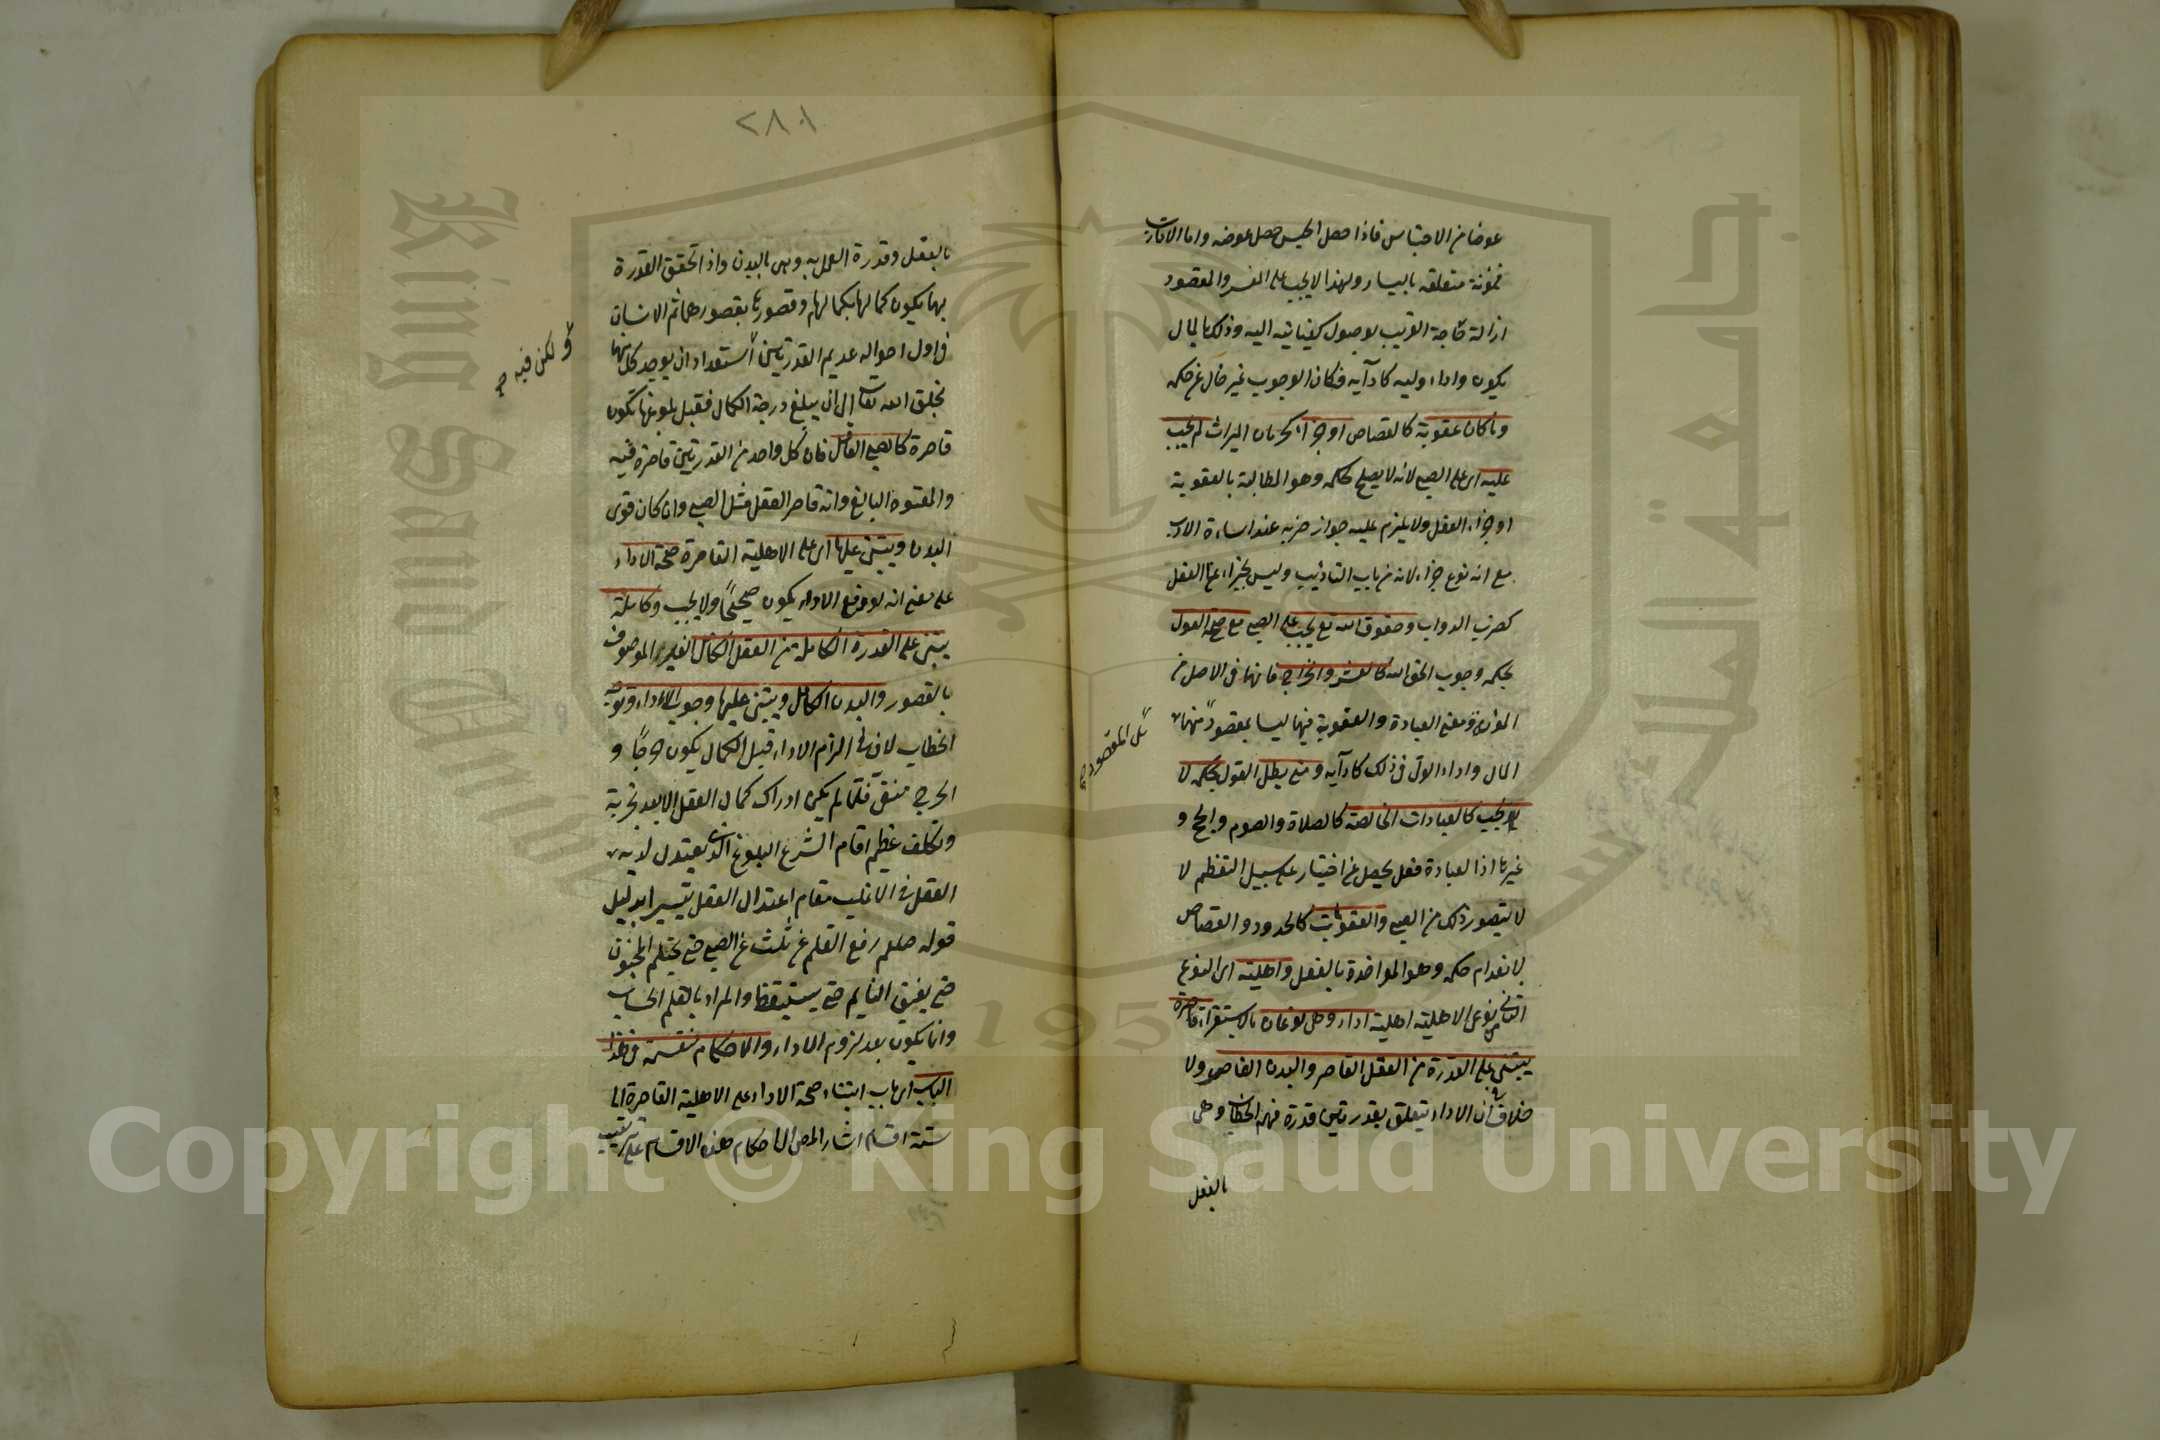 عوضا من الاحتباس فاذا حصل الحبس حصل عوضه واما الاقارب
فمؤنة متعلقه باليسار ولهذا لا يجب على المعسر والمقصود
ازالة حاجة القريب بوصول كفايته اليه وذلك بالمال
يكون واداء وليه كادآيه فكان الوجوب غير خال عن حكمه
وما كان عقوبة كالقصاص او جزاء كحرمان الميراث لم يجب
عليه اى على الصبي لانه لا يصلح لحكمه وهو المطالبة بالعقوبة
او جزاء الفعل ولا يلزم عليه جواز ضربه عند اساءة الادب
مع انه نوع جزاء لانه من باب التاديب وليس بجزاء عن الفعل
كضرب الدواب وحقوق الله تع يجب على الصبي مع صحة القول
بحكمه وجوب الحق لله كالعشر والخراج فانهما فى الاصل من
المؤن ومعنى العبادة والعقوبة فيهما ليسا بمقصود منهما
بل المقصود
المال واداء الولى فى ذلك كادآيه ومتى بطل القول بحكمه لا
لا يجب كالعبادات الخالصة كالصلاة والصوم والحج و
غيرها اذ العبادة فعل يحصل عن اختيار على سبيل التعظيم لا
لا يتصور ذلك من الصبي والعقوبات كالحدود والقصاص
لانعدام حكمه وهو المواخذة بالفعل واهلية اى النوع
الثانى من نوعى الاهلية اهلية اداء وهى نوعان بالاستقراء قاصرة
يبتنى على القدرة من العقل القاصر والبدن القاصر ولا
خلاف فى ان الاداء يتعلق بقدرتين قدرة فهم الخطاب وهى
بالعقل
٢٨١
بالعقل وقدرة العمل به وهى بالبدن واذا تحقق القدرة
بهما يكون كمالها بكمالهما وقصورها بقصورهما ثم الانسان
فى اول احواله عديم القدرتين استعداد ان يوجد كل منهما
و لكن فيه صح
بخلق الله تعالى الى ان يبلغ درجة الكمال فقبل بلوغها تكون
قاصرة كالصبي العاقل فان كل واحد من القدرتين قاصرة فيه
والمعتوه البالغ وانه قاصر العقل مثل الصبي وان كان قوى
البدن ويبتنى عليها اى على الاهلية القاصرة صحة الاداء
على معنى انه لو وقع الاداء يكون صحيحًا ولا يجب وكاملة
يبتنى على القدرة الكاملة من العقل الكامل الغير الموصوف
بالقصور والبدن الكامل ويبتنى عليها وجوب الاداء وتوجه
الخطاب لان فى الزام الاداء قبل الكمال يكون حرجًا و
الحرج منفى فلما لم يكن ادراك كمال العقل الا بعد تجربة
وتكلف عظيم اقام الشرع البلوغ الذى يعتدل لديه
العقل فى الاغلب مقام اعتدال العقل تيسيرا بدليل
قوله صلعم رفع القلم عن ثلث عن الصبي حتى يحتلم والمجنون
حتى يفيق والنايم حتى يستيقظ والمراد بالقلم الحساب
وانما يكون بعد لزوم الاداء والاحكام منقسمة فى هذا
الباب اى باب ابتناء صحة الاداء على الاهلية القاصرة الى
ستة اقسام اشار المص الى احكام هذه الاقسام على ترتيب